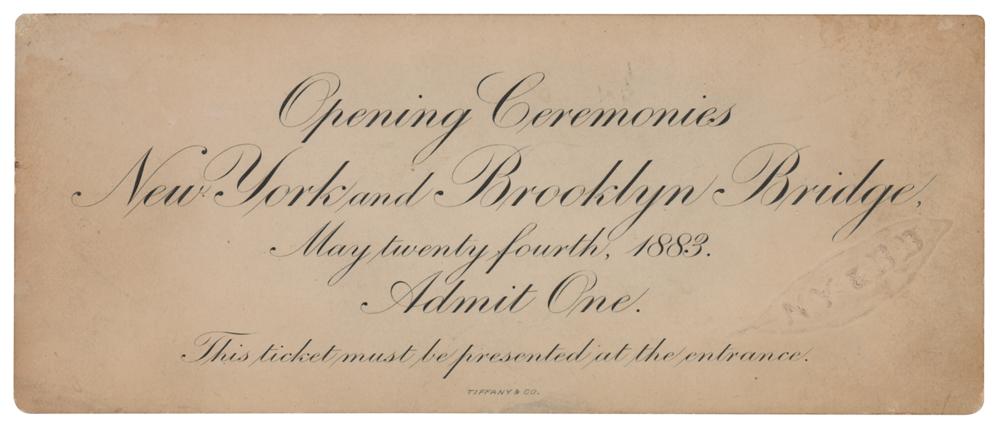 Opening Ceremonies
New York and Brooklyn Bridge,
May twenty fourth, 1883.
Admit One.
This ticket must be presented at the entrance.
TIFFANY & CO.
N.Y. & B.B.